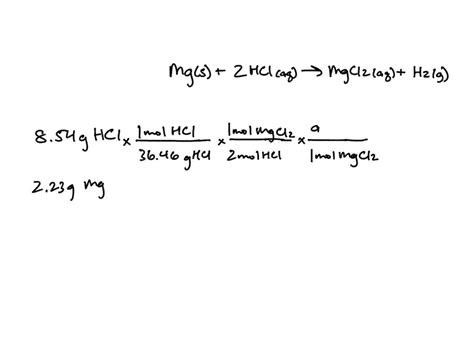 Mg(s) + 2HCl(aq) → MgCl2(aq) + H2(g)
8.54g HCl x 1mol HCl / 36.46 gHCl x 1mol MgCl2 / 2mol HCl x g / 1mol MgCl2
2.23g Mg